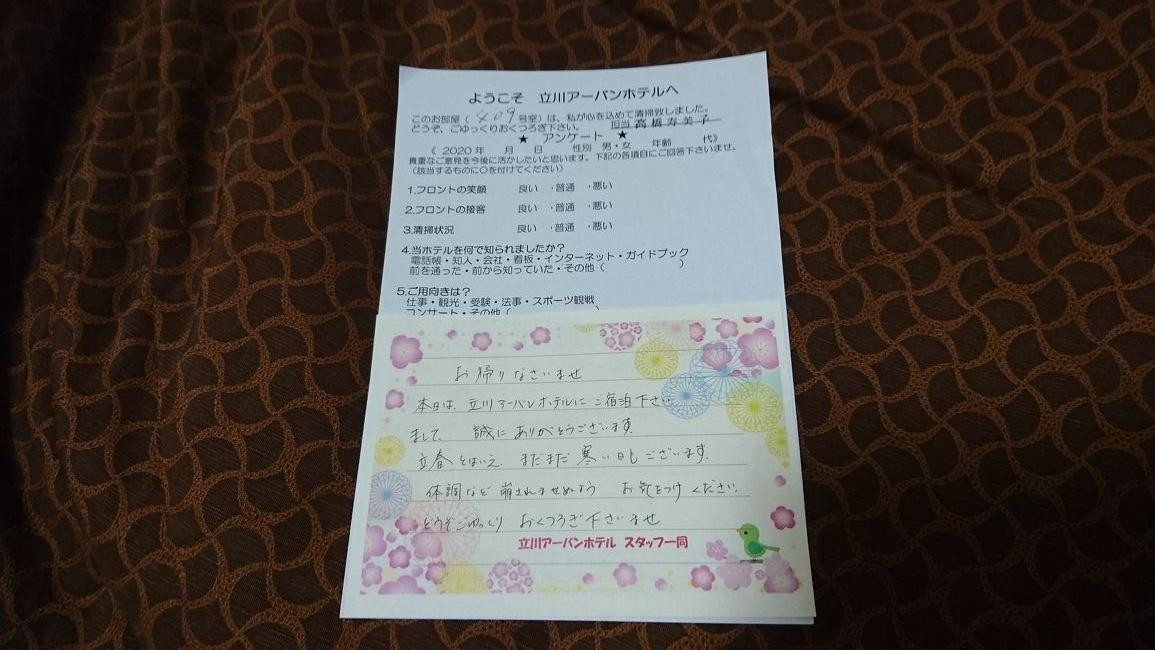 ようこそ 立川アーバンホテルへ
このお部屋（ 409 号室）は、私が心を込めて清掃致しました。
どうぞ、ごゆっくりおくつろぎ下さい。 担当 高橋寿美子
★ アンケート ★
《 2020年 月 日 性別 男・女 年齢 代》
貴重なご意見を今後に活かしたいと思います。下記の各項目にご回答下さいませ。
（該当するものに○を付けてください）
1.フロントの笑顔 良い ・普通 ・悪い
2.フロントの接客 良い ・普通 ・悪い
3.清掃状況 良い ・普通 ・悪い
4.当ホテルを何で知られましたか？
電話帳・知人・会社・看板・インターネット・ガイドブック
前を通った・前から知っていた・その他（ ）
5.ご用向きは？
仕事・観光・受験・法事・スポーツ観戦
コンサート・その他（ ）
お帰りなさいませ
本日は、立川アーバンホテルにご宿泊下さい
まして、 誠にありがとうございます。
立春とはいえ、まだまだ寒い日もございます。
体調など崩されませぬよう お気をつけください。
どうぞごゆっくり おくつろぎ下さいませ
立川アーバンホテル スタッフ一同